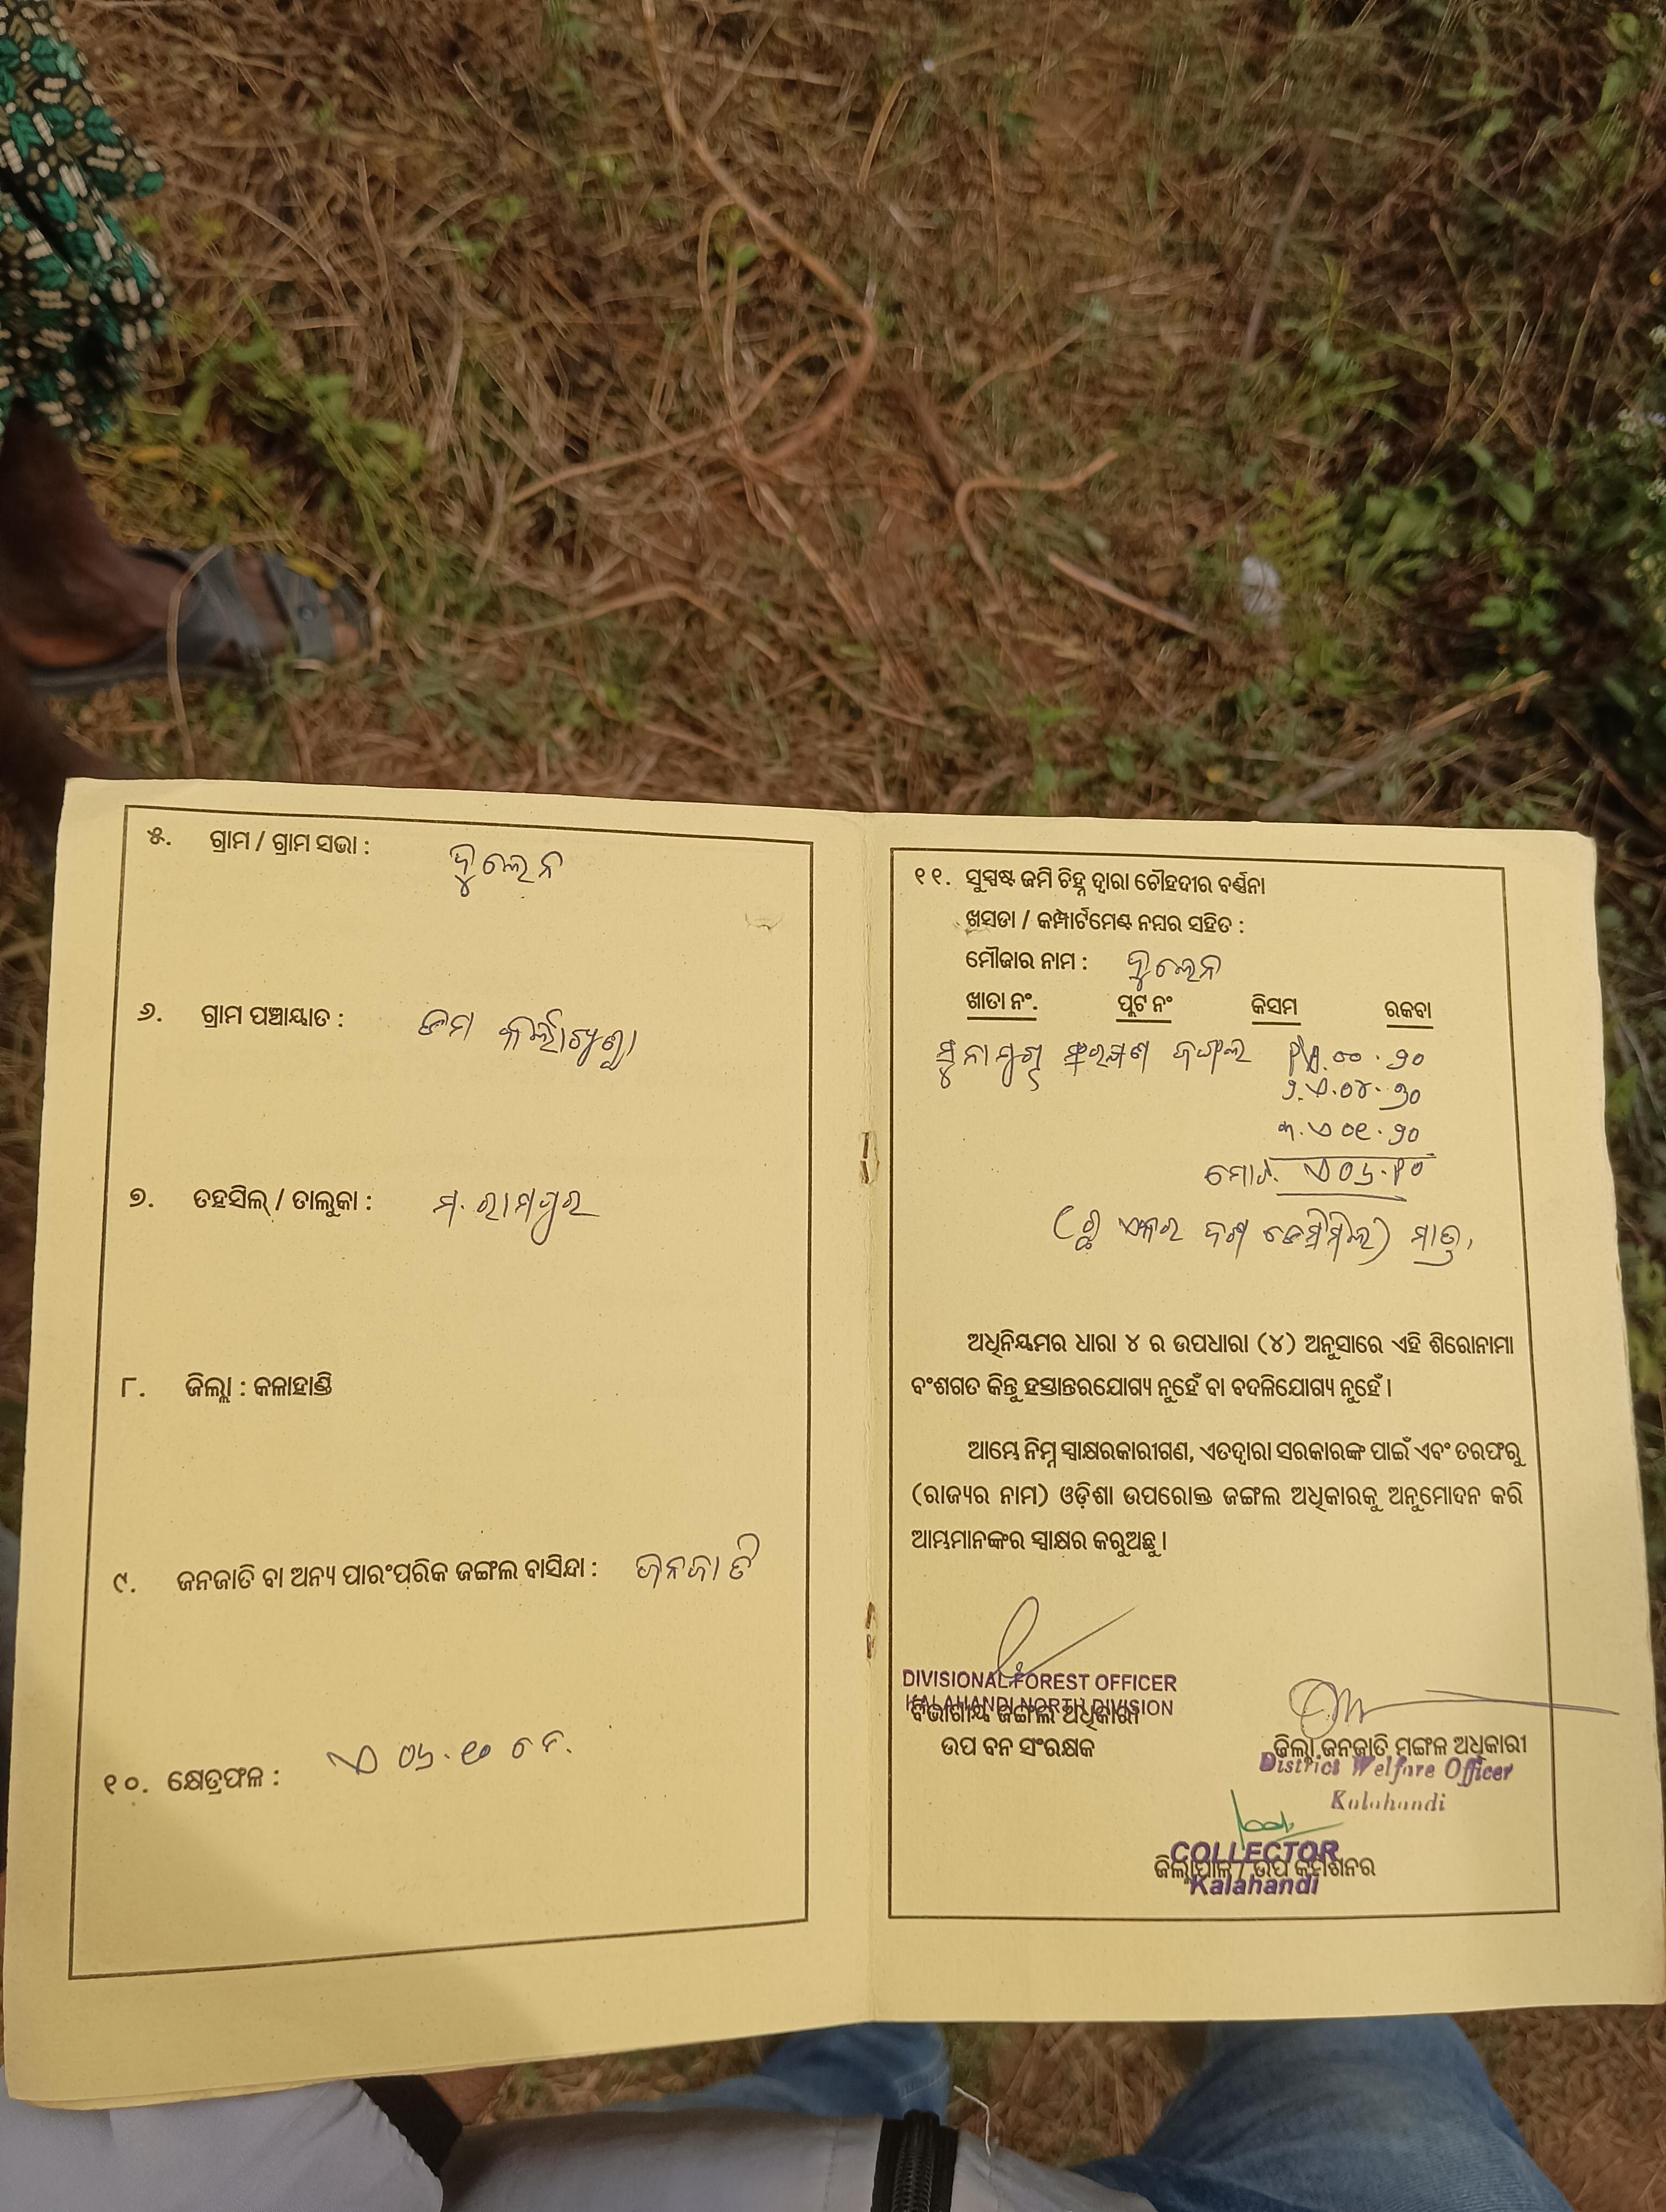 ୫. ଗ୍ରାମ / ଗ୍ରାମ ସଭା : ଦୁଲେନ
୬. ଗ୍ରାମ ପଞ୍ଚାୟାତ : ଡମ କର୍ଲାଖୁଣ୍ଟା
୭. ତହସିଲ୍ / ତାଲୁକା : ମ. ରାମପୁର
୮. ଜିଲ୍ଲା : କଳାହାଣ୍ଡି
୯. ଜନଜାତି ବା ଅନ୍ୟ ପାରଂପରିକ ଜଙ୍ଗଲ ବାସିନ୍ଦା : ଜନଜାତି
୧୦. କ୍ଷେତ୍ରଫଳ : ଏ ୦୬.୧୦
୧୧. ସୁସ୍ପଷ୍ଟ ଜମି ଚିହ୍ନ ଦ୍ୱାରା ଚୌହଦୀର ବର୍ଣ୍ଣନା
ଖସଡା / କମ୍ପାର୍ଟମେଣ୍ଟ ନମ୍ବର ସହିତ :
ମୌଜାର ନାମ : ଦୁଲେନ
ଖାତା ନଂ. ପ୍ଲଟ ନଂ କିସମ ରକବା
ସଂରକ୍ଷଣ ଜଙ୍ଗଲ ୦୦.୨୦
୨.ଏ.୦୪.୭୦
୩.ଏ ୦୧.୨୦
ମୋଟ. ଏ ୦୬.୧୦
(ଛ ଏକର ଦଶ ଡେସିମିଲ) ମାତ୍ର,
ଅଧିନିୟମର ଧାରା ୪ ର ଉପଧାରା (୪) ଅନୁସାରେ ଏହି ଶିରୋନାମା
ବଂଶଗତ କିନ୍ତୁ ହସ୍ତାନ୍ତରଯୋଗ୍ୟ ନୁହେଁ ବା ବଦଳିଯୋଗ୍ୟ ନୁହେଁ ।
ଆମ୍ଭେ ନିମ୍ନ ସ୍ୱାକ୍ଷରକାରୀଗଣ, ଏତଦ୍ୱାରା ସରକାରଙ୍କ ପାଇଁ ଏବଂ ତରଫରୁ
(ରାଜ୍ୟର ନାମ) ଓଡ଼ିଶା ଉପରୋକ୍ତ ଜଙ୍ଗଲ ଅଧିକାରକୁ ଅନୁମୋଦନ କରି
ଆମ୍ଭମାନଙ୍କର ସ୍ୱାକ୍ଷର କରୁଅଛୁ ।
DIVISIONAL FOREST OFFICER
KALAHANDI NORTH DIVISION
ବିଭାଗୀୟ ଜଙ୍ଗଲ ଅଧିକାରୀ
ଉପ ବନ ସଂରକ୍ଷକ
ଜିଲ୍ଲା ଜନଜାତି ମଙ୍ଗଳ ଅଧିକାରୀ
District Welfare Officer
Kalahandi
COLLECTOR
ଜିଲ୍ଲାପାଳ / ଉପ କମିଶନର
Kalahandi